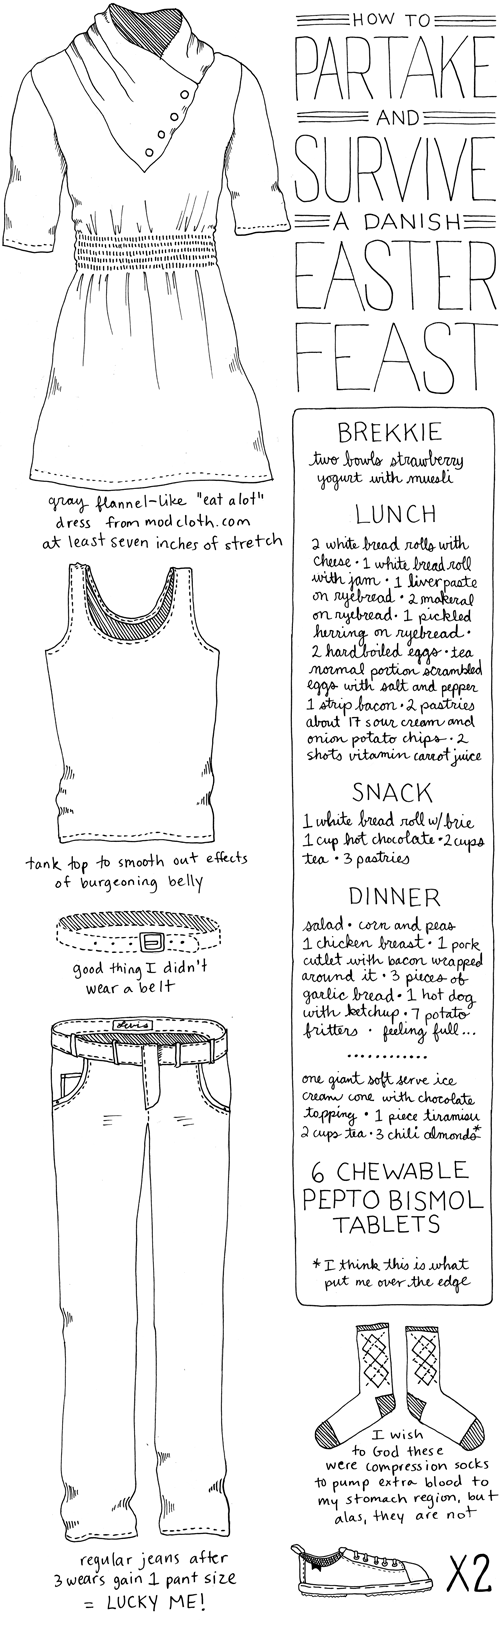 HOW TO
PARTAKE
AND
SURVIVE
A DANISH
EASTER
FEAST
BREKKIE
two bowls strawberry
yogurt with muesli
LUNCH
2 white bread rolls with
cheese · 1 white bread roll
with jam · 1 liverpaste
on ryebread · 2 makeral
on ryebread · 1 pickled
herring on ryebread ·
2 hard boiled eggs · tea
normal portion scrambled
eggs with salt and pepper
1 strip bacon · 2 pastries
about 17 sour cream and
onion potato chips · 2
shots vitamin carrot juice
SNACK
1 white bread roll w/ brie
1 cup hot chocolate · 2 cups
tea · 3 pastries
DINNER
salad · corn and peas
1 chicken breast · 1 pork
cutlet with bacon wrapped
around it · 3 pieces of
garlic bread · 1 hot dog
with ketchup · 7 potato
fritters · feeling full...
............
one giant soft serve ice
cream cone with chocolate
topping · 1 piece tiramisu
2 cups tea · 3 chili almonds*
6 CHEWABLE
PEPTO BISMOL
TABLETS
*I think this is what
put me over the edge
gray flannel-like "eat alot"
dress from modcloth.com
at least seven inches of stretch
tank top to smooth out effects
of burgeoning belly
good thing I didn't
wear a belt
Levis
regular jeans after
3 wears gain 1 pant size
= LUCKY ME!
I wish
to God these
were compression socks
to pump extra blood to
my stomach region, but
alas, they are not
X2